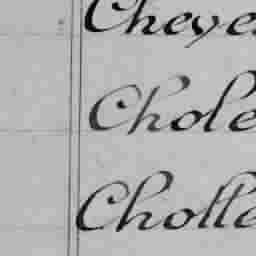 Cheye
Chole
Cholle